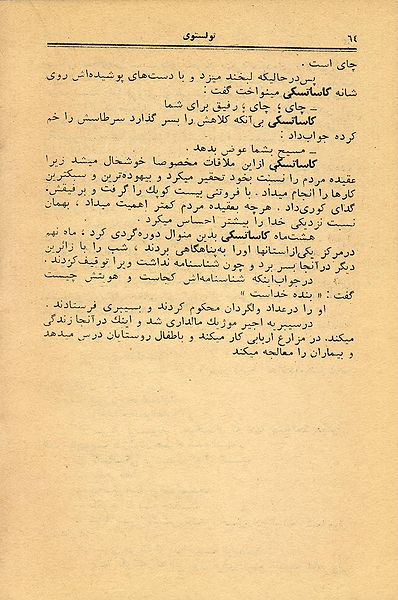 ۶٤
تولستوی
چای است .
پس‌درحالیکه لبخند میزد و با دست‌های پوشیده‌اش روی
شانه کاساتسکی مینواخت گفت :
ــ چای ؛ چای ؛ رفیق برای شما
کاساتسکی بی‌آنکه کلاهش را بسر گذارد سرطاسش را خم
کرده جواب‌داد :
ــ مسیح بشما عوض بدهد .
کاساتسکی ازاین ملاقات مخصوصا خوشحال میشد زیرا
عقیده مردم را نسبت بخود تحقیر میکرد و بیهوده‌ترین و سبکترین
کارها را انجام میداد . با فروتنی بیست کوپك را گرفت و برفیقش.
گدای کوری‌داد . هرچه بعقیده مردم کمتر اهمیت میداد ، بهمان
نسبت نزدیکی خدا را بیشتر احساس میکرد .
هشت‌ماه کاساتسکی بدین منوال دوره‌گردی کرد ، ماه نهم
درمرکز یکی‌ازاستانها اورا به‌پناهگاهی بردند ، شب را با زائرین
دیگر درآنجا بسر برد و چون شناسنامه نداشت ویرا توقیف کردند .
درجواب‌اینکه شناسنامه‌اش کجاست و هویتش چیست
گفت : « بنده خداست »
او را درعداد ولگردان محکوم کردند و بسیبری فرستادند .
درسیبر به اجیر موژیك مالداری شد و اینك درآنجا زندگی
میکند. در مزارع اربابی کار میکند و باطفال روستایان درس میدهد
و بیماران را معالجه میکند